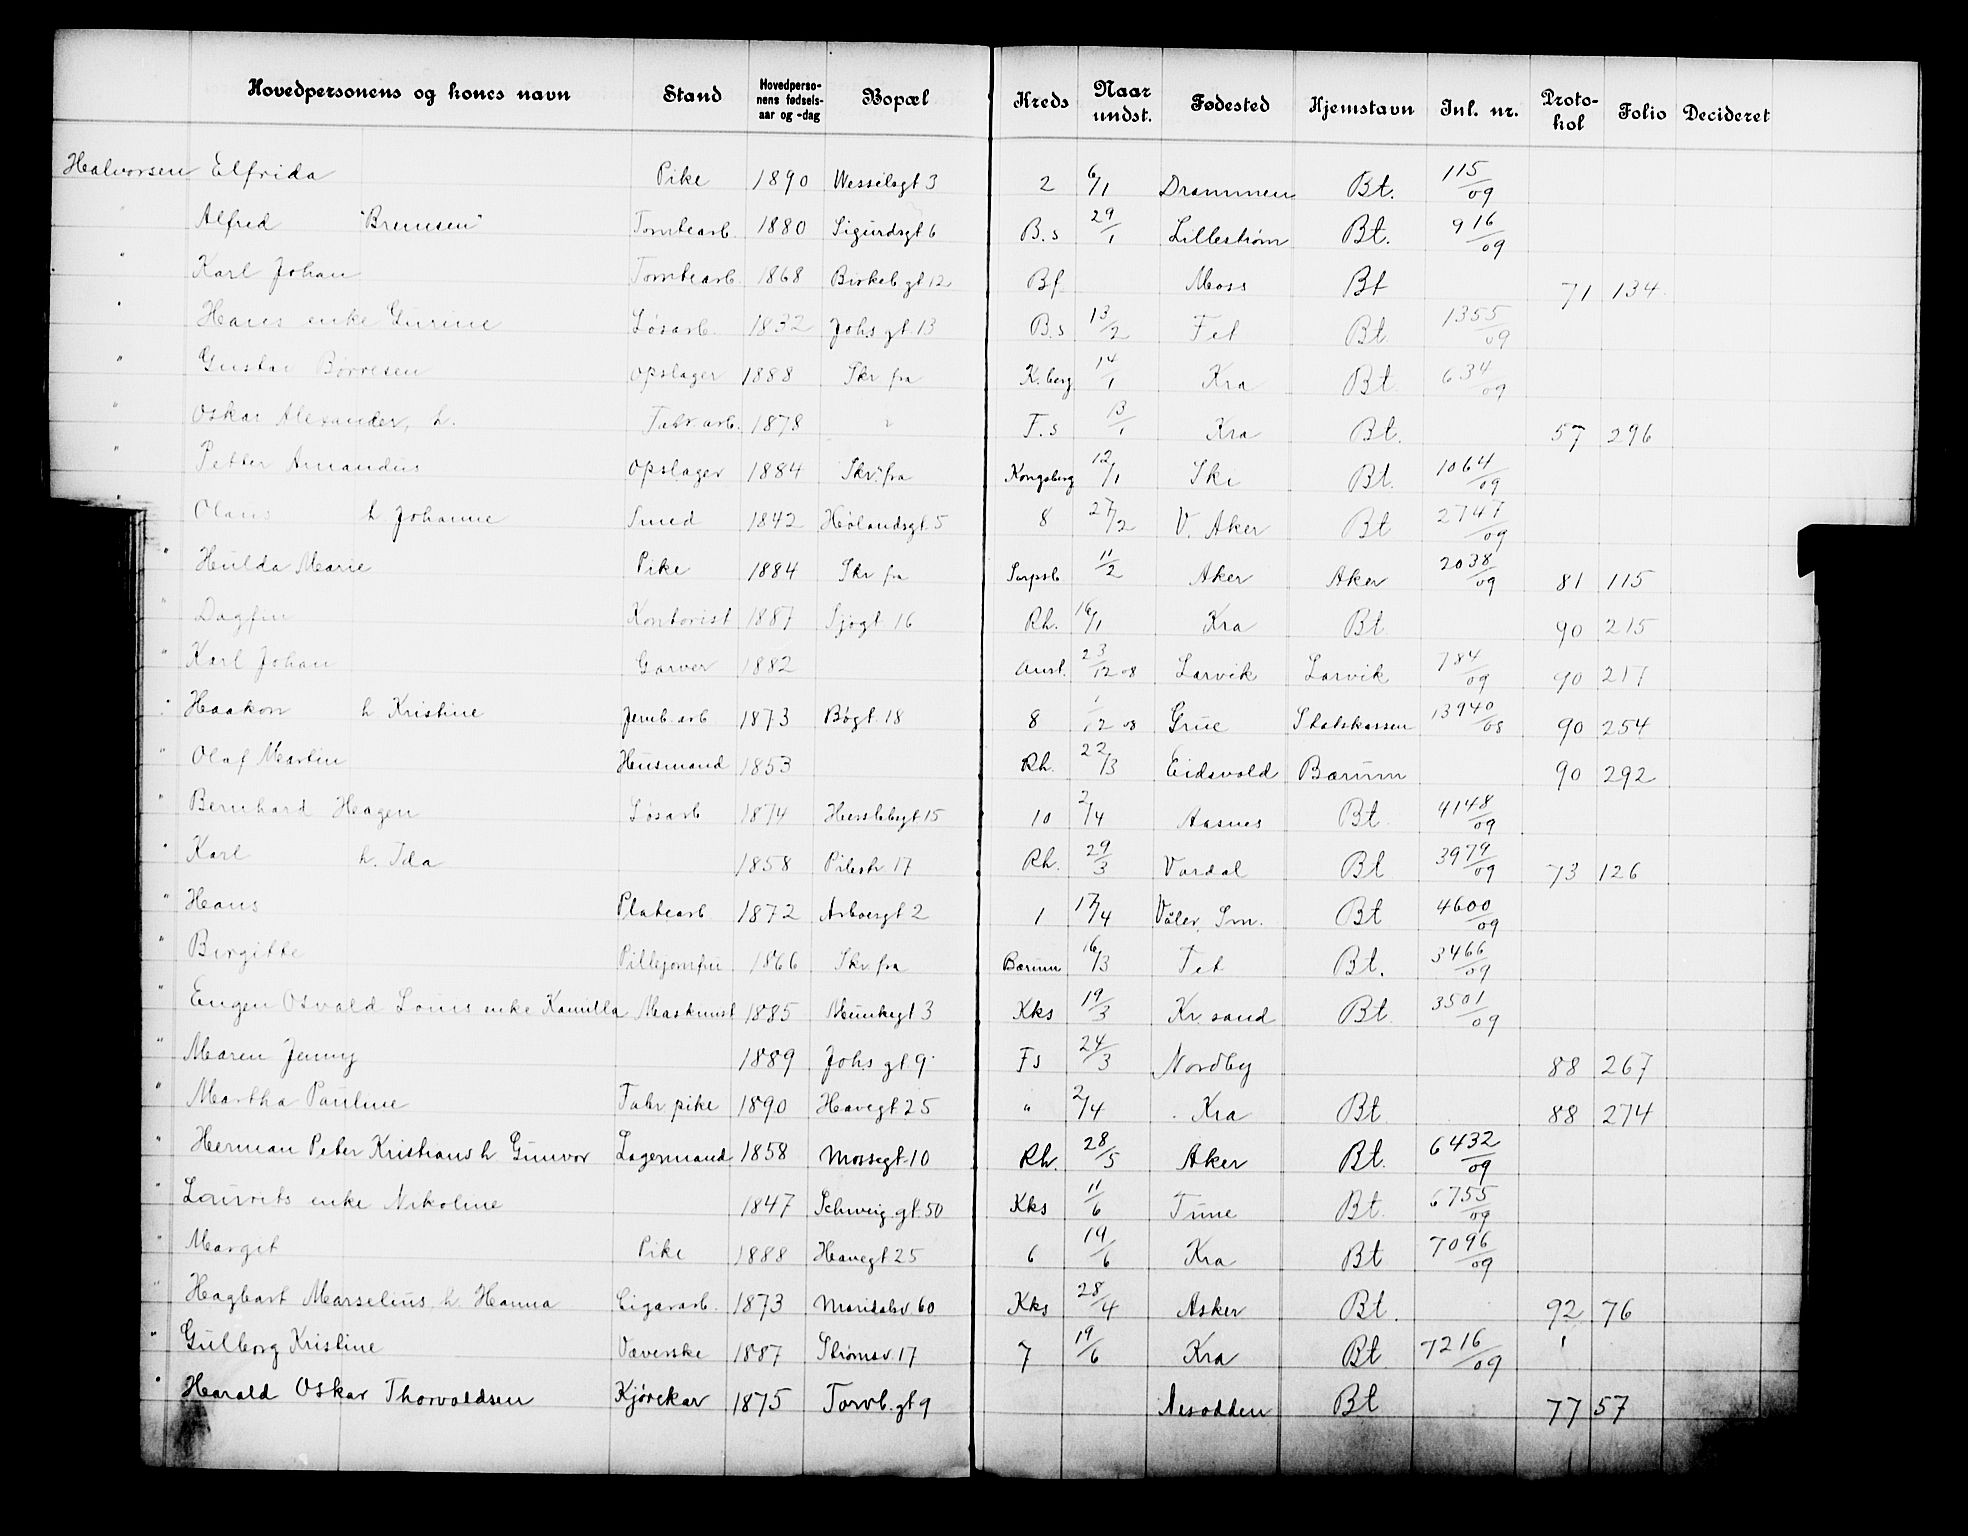 Hovedpersonens og kones navn | Stand | Hovedpersonens fødselsaar og -dag | Bopæl | Kreds | Naar undst. | Fødested | Hjemstavn | Inl. nr. | Protokol | Folio | Decideret
Halvorsen Elfrida | Pike | 1890 | Wesselsgt 3 | 2 | 6/1 | Drammen | Bt. | 115/09
" Alfred "Bremsen" | Tomtearb. | 1880 | Sigurdsgt 6 | B.s | 29/1 | Lillestrøm | Bt. | 916/09
" Karl Johan | Tomtearb. | 1868 | Birkeb gt 12 | Bf | Moss | Bt | 71 | 134
" Hans enke Gurine | Løsarb. | 1832 | Johs gt. 13 | B.s | 13/2 | Fet | Bt. | 1355/09
" Gustav Børresen | Opslager | 1888 | Skr fra | K.berg | 14/1 | Kra | Bt. | 634/09
" Oskar Alexander, h. | Fabr.arb. | 1878 | " | F.s | 13/1 | Kra | Bt. | 57 | 296
" Petter Amandus | Opslager | 1884 | Skr. fra | Kongsberg | 12/1 | Ski | Bt. | 1064/09
" Olaus h Johanne | Smed | 1842 | Hølandsgt. 5 | 8 | 27/2 | V. Aker | Bt | 2747/09
" Hulda Marie | Pike | 1884 | Skr fra | Sarpsb | 11/2 | Aker | Aker | 2038/09 | 81 | 115
" Dagfin | Kontorist | 1887 | Sjøgt. 16 | Rh. | 16/1 | Kra | Bt | 90 | 215
" Karl Johan | Garver | 1882 | Anst. | 23/12 08 | Larvik | Larvik | 784/09 | 90 | 217
" Haakon h Kristine | Jernb.arb | 1873 | Bøgt. 18 | 8 | 1/12 08 | Grue | Statskassen | 13940/08 | 90 | 254
" Olaf Martin | Husmand | 1853 | Rh. | 22/3 | Eidsvold | Bærum | 90 | 292
" Bernhard Hagen | Løsarb | 1874 | Herslebsgt. 15 | 10 | 2/4 | Aasnes | Bt. | 4148/09
" Karl h. Ida | 1858 | Pilestr 17 | Rh. | 29/3 | Vardal | Bt | 3979/09 | 73 | 126
" Hans | Platearb | 1872 | Arboesgt 2 | 1 | 17/4 | Våler, Sm. | Bt | 4600/09
" Birgitte | Pillejomfru | 1866 | Skr. fra | Bærum | 16/3 | Fet | Bt. | 3466/09
" Eugen Osvald Louis enke Kamilla | Maskinist | 1885 | Munkegt 3 | Kks | 19/3 | Kr. sand | Bt. | 3501/09
" Maren Jenny | 1889 | Johs gt. 9 | Fs | 24/3 | Nordby | 88 | 267
" Martha Pauline | Fabr pike | 1890 | Havegt 25 | " | 2/4 | Kra | Bt | 88 | 274
" Herman Peter Kristians h Gunvor | Lagermand | 1858 | Mossegt. 10 | Rh. | 28/5 | Aker | Bt. | 6432/09
" Laurits enke Nikoline | 1847 | Schweig. gt. 50 | Kks | 11/6 | Tune | Bt. | 6755/09
" Margit | Pike | 1888 | Havegt 25 | 6 | 19/6 | Kra | Bt | 7096/09
" Hagbart Marselius h. Hanna | Cigararb. | 1873 | Maridalsv. 60 | Kks | 28/4 | Asker | Bt. | 92 | 76
" Gulborg Kristine | Væverske | 1887 | Strømsv. 17 | 7 | 19/6 | Kra | Bt. | 7216/09
" Harald Oskar Thorvaldsen | Kjørekar | 1875 | Torvb. gt 9 | Nesodden | Bt | 77 | 57